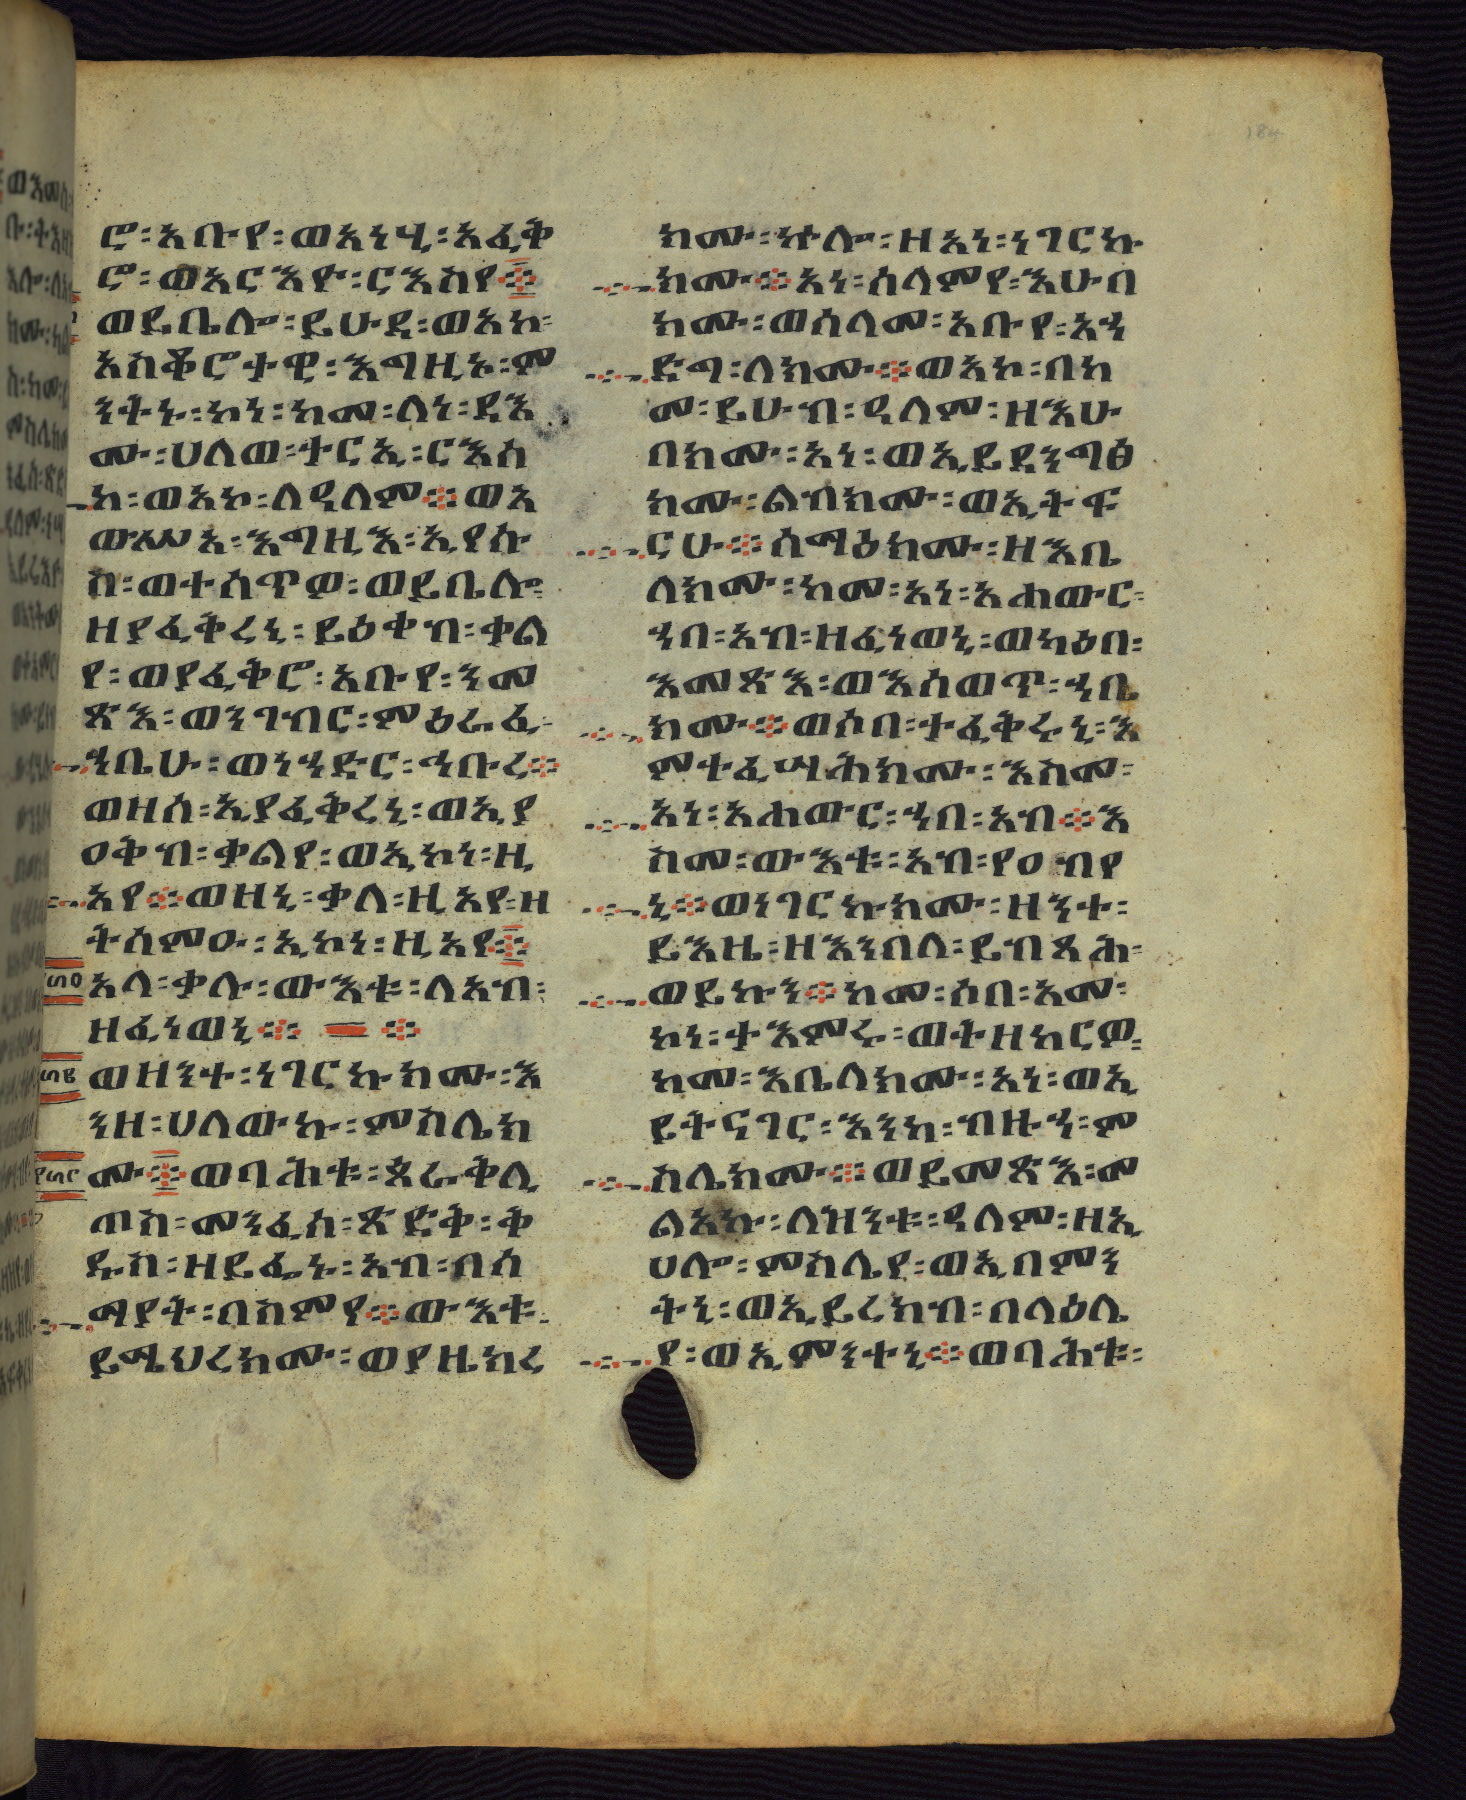 ሮ፡አቡየ፡ወአነሂ፡አፈቅ
ሮ፡ወአርእዮ፡ርእስየ።
ወይቤሎ፡ይሁዳ፡ወአኮ፡
አስቆሮታዊ፡እግዚኦ፡ም
ንትኑ፡ኮነ፡ከመ፡ለነ፡ዳእ
ሙ፡ሀለወ፡ታርኢ፡ርእስ
ከ፡ወአኮ፡ለዓለም።ወአ
ውሥአ፡እግዚእ፡ኢየሱ
ስ፡ወተሰጥዎ፡ወይቤሎ፡
ዘያፈቅረኒ፡ይዕቀብ፡ቃል
የ፡ወያፈቅሮ፡አቡየ፡ንመ
ጽእ፡ወንገብር፡ምዕራፈ፡
ኀቤሁ፡ወነኀድር፡ኀቡረ።
ወዘሰ፡ኢያፈቅረኒ፡ወኢያ
ዐቅብ፡ቃልየ፡ወኢኮነ፡ዚ
አየ።ወዘኒ፡ቃለ፡ዚአየ፡ዘ
ትሰምዑ፡ኢኮነ፡ዚአየ።
አላ፡ቃሉ፡ውእቱ፡ለአብ፡
ዘፈነወኒ።
ወዘንተ፡ነገርኩክሙ፡እ
ንዘ፡ሀለውኩ፡ምስሌክ
ሙ።ወባሕቱ፡ጰራቅሊ
ጦስ፡መንፈስ፡ጽድቅ፡ቅ
ዱስ፡ዘይፌኑ፡አብ፡በስ
ማየት፡በስምየ።ውእቱ፡
ይሜህረክሙ፡ወያዜክረ
ክሙ፡ኵሎ፡ዘአነ፡ነገርኩ
ክሙ።አነ፡ሰላምየ፡እሁብ
ክሙ፡ወሰላመ፡አቡየ፡አኀ
ድግ፡ለክሙ።ወአኮ፡በከ
መ፡ይሁብ፡ዓለም፡ዘእሁ
በክሙ፡አነ፡ወኢይደንግፅ
ክሙ፡ልብክሙ፡ወኢትፍ
ርሁ።ሰማዕክሙ፡ዘእቤ
ለክሙ፡ከመ፡አነ፡አሐውር፡
ኀበ፡አብ፡ዘፈነወኒ፡ወካዕበ፡
እመጽእ፡ወእሰወጥ፡ኀቤ
ክሙ።ወሶበ፡ታፈቅሩኒ፡እ
ምተፈሣሕክሙ፡እስመ፡
አነ፡አሐውር፡ኀበ፡አብ።እ
ስመ፡ውእቱ፡አብ፡የዐብየ
ኒ።ወነገርኩክሙ፡ዘንተ፡
ይእዜ፡ዘእንበለ፡ይብጻሕ፡
ወይኩን።ከመ፡ሶበ፡አመ፡
ኮነ፡ታእምሩ፡ወትዘከርዎ፡
ከመ፡እቤለክሙ፡አነ፡ወኢ
ይትናገር፡እንከ፡ብዙኀ፡ም
ስሌክሙ።ወይመጽእ፡መ
ልአኩ፡ለዝንቱ፡ዓለም፡ዘኢ
ሀሎ፡ምስሌየ፡ወኢበምን
ትኒ፡ወኢይረክብ፡በላዕሌ
የ፡ወኢምንተኒ።ወባሕቱ፡